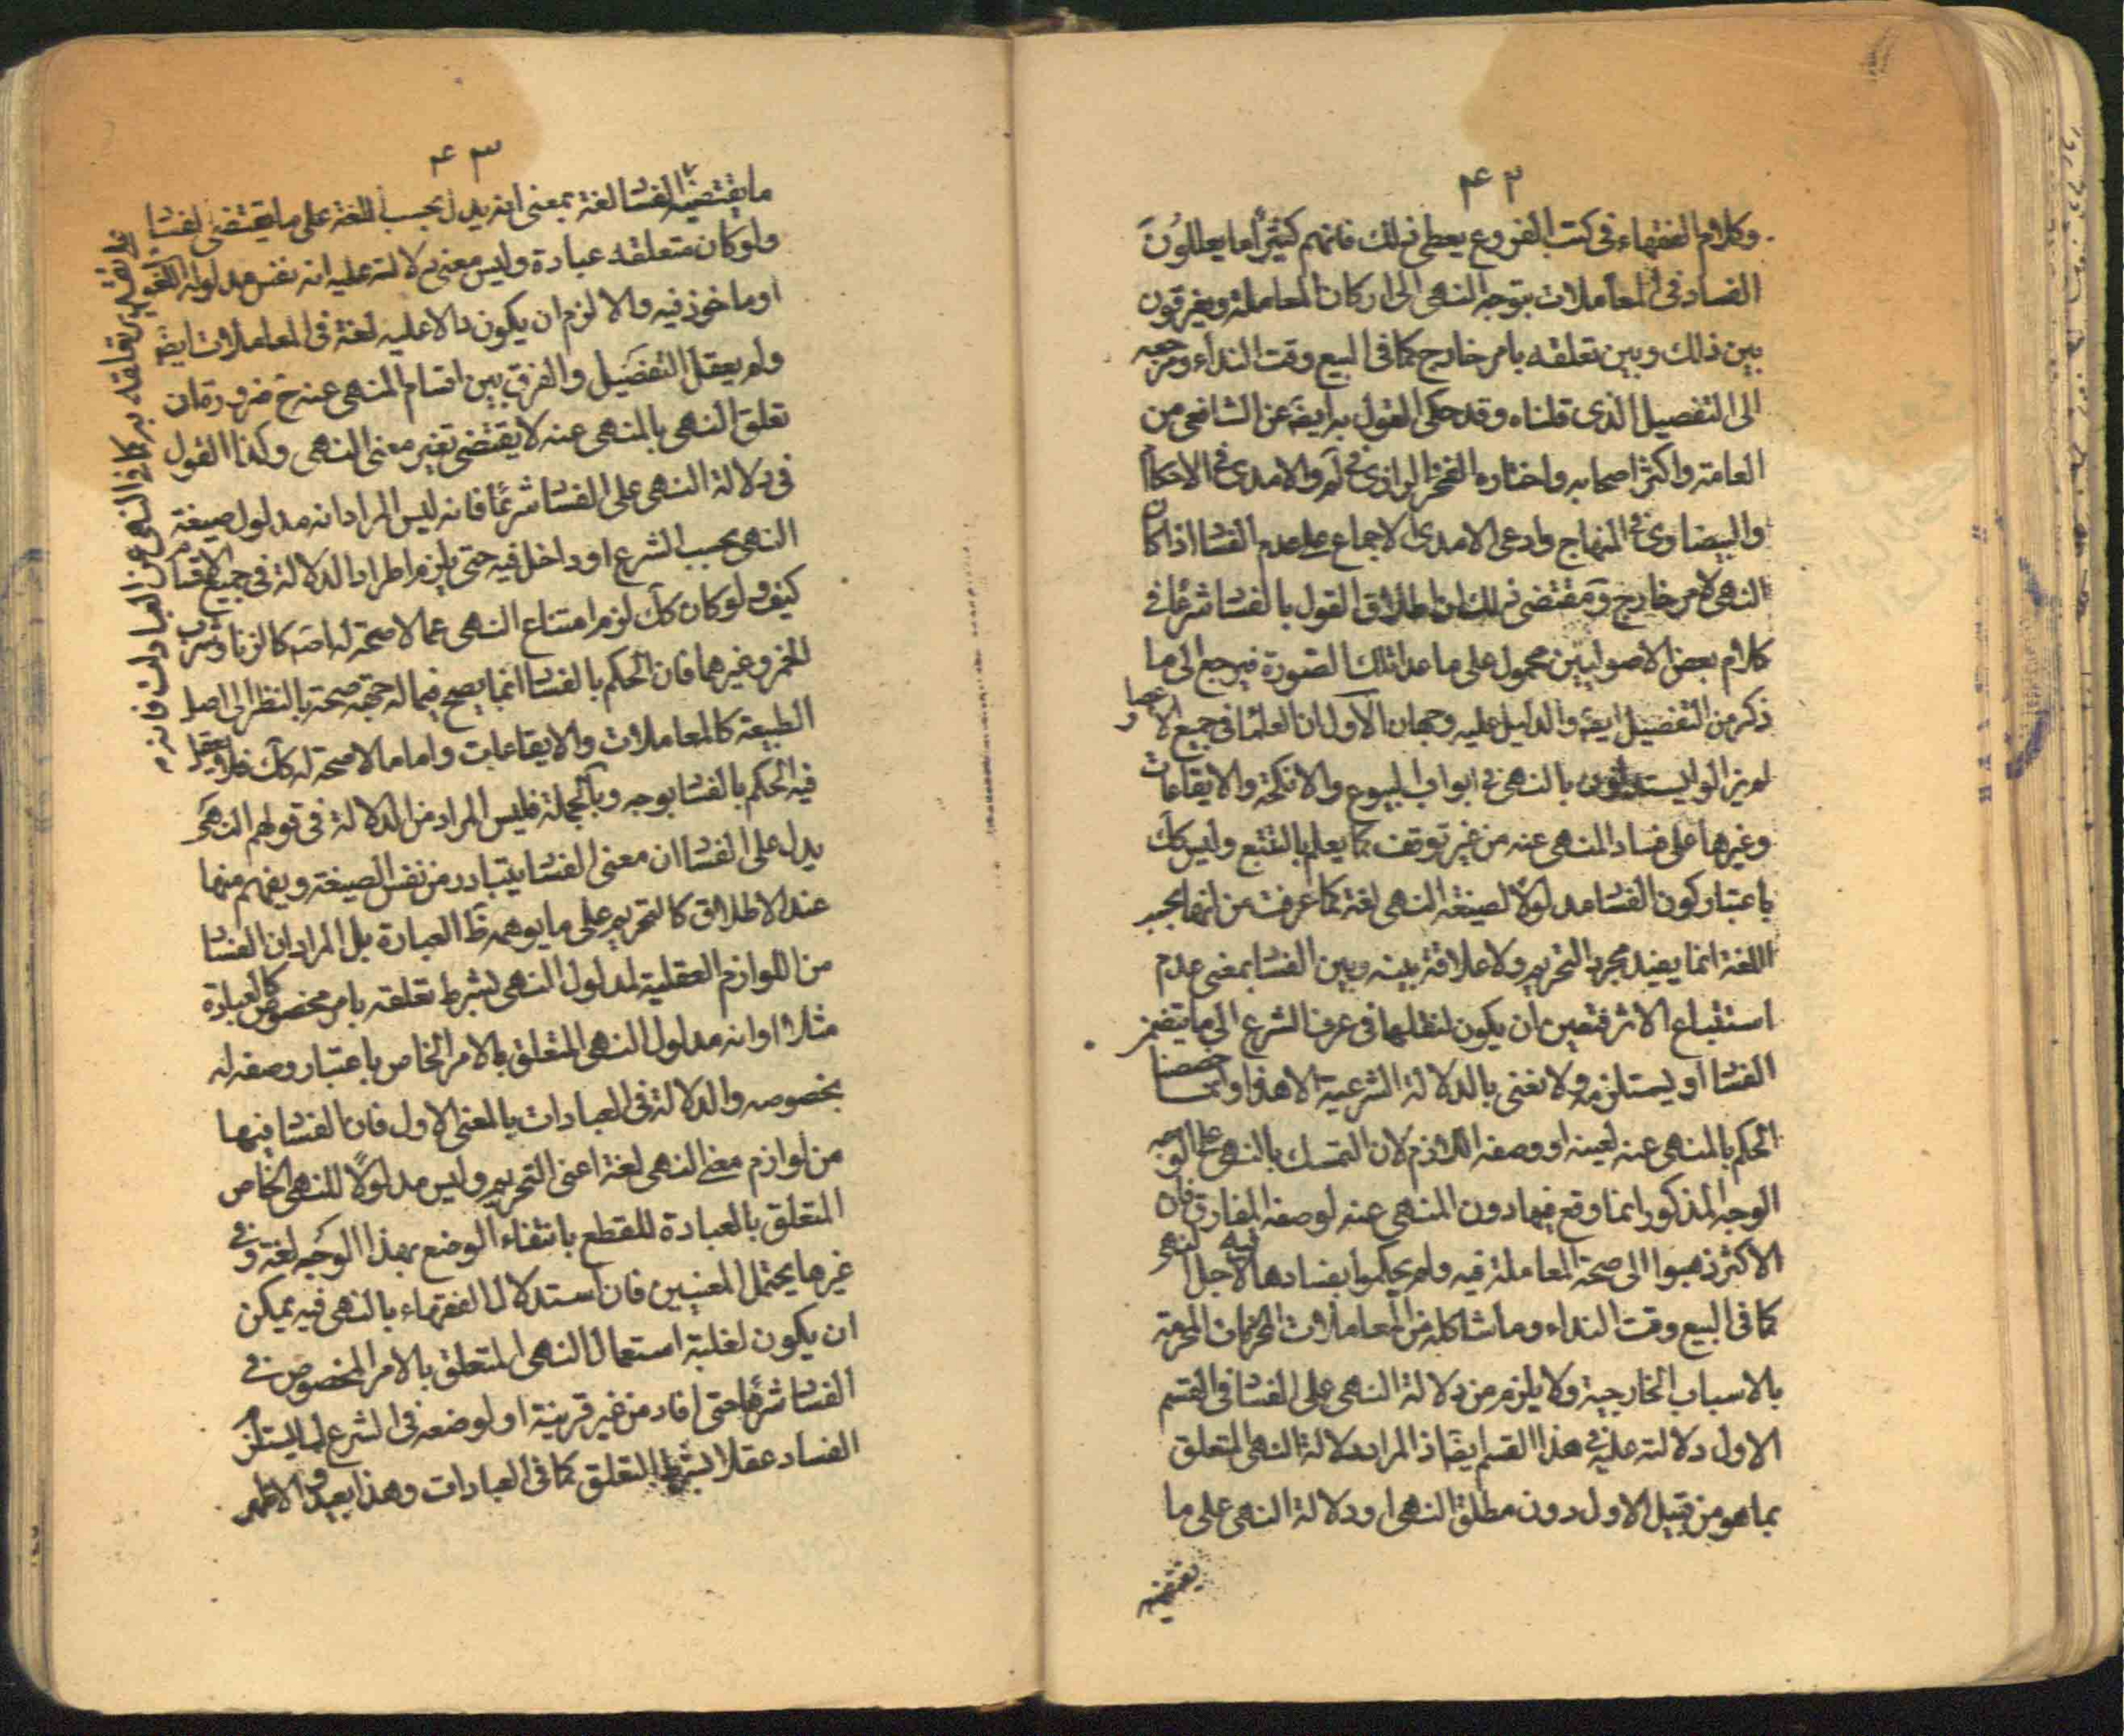 ۴۲
وكلام الفقهاء في كتب الفروع يعطي ذلك فانهم كثيرا ما يعللون
الفساد في المعاملات بتوجه النهى الى اركان المعاملة ويفرقون
بين ذلك وبين تعلقه بامر خارج كما في البيع وقت النداء ومرجعه
الى التفصيل الذى قلناه وقد حكى القول به ايضا عن الشافعي من
العامة واكثر اصحابه واختاره الفخر الرازي في لم والامدى في الاحكام
والبيضاوى في المنهاج وادعى الامدى الاجماع على عدم الفسا اذا كان
النهى لامر خارج ومقتضى ذلك ان اطلاق القول بالفسا شرعا في
كلام بعض الاصوليين محمول على ما عدا تلك الصورة فيرجع الى ما
ذكر من التفصيل ايضا والدليل عليه وجهان الاول ان العلما في جميع الاعصار
لم يزالوا يستدلون بالنهى في ابواب البيوع والانكحة والايقاعات
وغيرها على فساد المنهى عنه من غير توقف كما يعلم بالتتبع وليس كك
باعتبار كون الفسا مدلولا لصيغة النهى لغة كما عرفت من انها بحسب
اللغة انما يفيد مجرد التحريم ولا علاقة بينه وبين الفسا بمعنى عدم
استتباع الاثر فتعين ان يكون لنقلها في عرف الشرع الى ما يتضمن
الفسا او يستلزمه ولا نعنى بالدلالة الشرعية الا هذا وانما خصصنا
الحكم بالمنهى عنه لعينه او وصفه اللازم لان التمسك بالنهى على الوجه
الوجه المذكور انما وقع فيها دون المنهى عنه لوصفه المفارق فان
الاكثر ذهبوا الى صحة المعاملة فيه ولم يحكموا بفسادها لاجل النهى
كما في البيع وقت النداء وما شاكله من المعاملات المحرمة
بالاسباب الخارجية ولا يلزم من دلالة النهى على الفسا في القسم
الاول دلالته عليه في هذا القسم ايضا اذ المراد دلالة النهى المتعلق
بما هو من قبيل الاول دون مطلق النهى او دلالة النهى على ما
يقتضيه
۴۳
ما يقتضيه الفسا لغة بمعنى انه يدل بحسب اللغة على ما يقتضى الفسا
ولو كان متعلقه عبادة وليس معنى دلالته عليه انه نفس مدلوله اللغوى
او ماخوذ فيه والا لزم ان يكون دالا عليه لغة في المعاملات ايضا
ولم يعقل التفصيل والفرق بين اقسام المنهى عنه ح ضرورة ان
تعلق النهى بالمنهى عنه لا يقتضى تغير معنى النهى وكذا القول
في دلالة النهى على الفسا شرعا فانه ليس المراد انه مدلول صيغة
النهى بحسب الشرع او داخل فيه حتى يلزم اطراد الدلالة في جميع الاقسام
كيف ولو كان كك لزم امتناع النهى عما لا صحة له اصلا كالزنا وشرب
الخمر وغيرهما فان الحكم بالفسا انما يصح فيما له جهة صحة بالنظر الى اصل
الطبيعة كالمعاملات والايقاعات واما ما لا صحة له كك فلا يعقل
فيه الحكم بالفسا بوجه وبالجملة فليس المراد من الدلالة في قولهم النهى
يدل على الفسا ان معنى الفسا يتبادر من نفس الصيغة ويفهم منها
عند الاطلاق كالتحريم على ما يوهمه ظ العبارة بل المراد ان الفسا
من اللوازم العقلية لمدلول النهى بشرط تعلقه بامر مخصوص كالعبادة
مثلا او انه مدلول النهى المتعلق بالامر الخاص باعتبار وصفه له
بخصوصه والدلالة في العبادات بالمعنى الاول فان الفسا فيها
من لوازم معنى النهى لغة اعنى التحريم وليس مدلولا للنهى الخاص
المتعلق بالعبادة للقطع بانتفاء الوضع بهذا الوجه لغة وفي
غيرها يحتمل المعنيين فان استدلال الفقهاء بالنهى فيه يمكن
ان يكون لغلبة استعمال النهى المتعلق بالامر المخصوص في
الفسا شرعا حتى افاد من غير قرينة او لوضعه في الشرع لما يستلزم
الفساد عقلا بشرط التعلق كما في العبادات وهذا بعيد والاظهر
على تقدير تعلقه به كما في النهى عن العبادات فانه